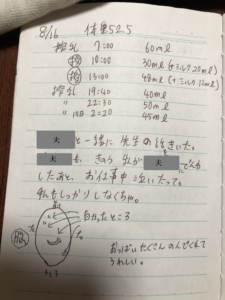 8/16 体重525
搾乳 7:00 60ml
10:00 30ml (+ミルク20ml)
13:00 48ml (+ミルク12ml)
搾乳 19:40 40ml
〃 22:30 50ml
〃 2:20 45ml
夫 と一緒に先生の話きいた。
夫 も、きのう私が 夫 にでんわ
したあと、お仕事中泣いたって。
私もしっかりしなくちゃ。
白かったところ
おっぱいたくさんのんでくれて
うれしい。